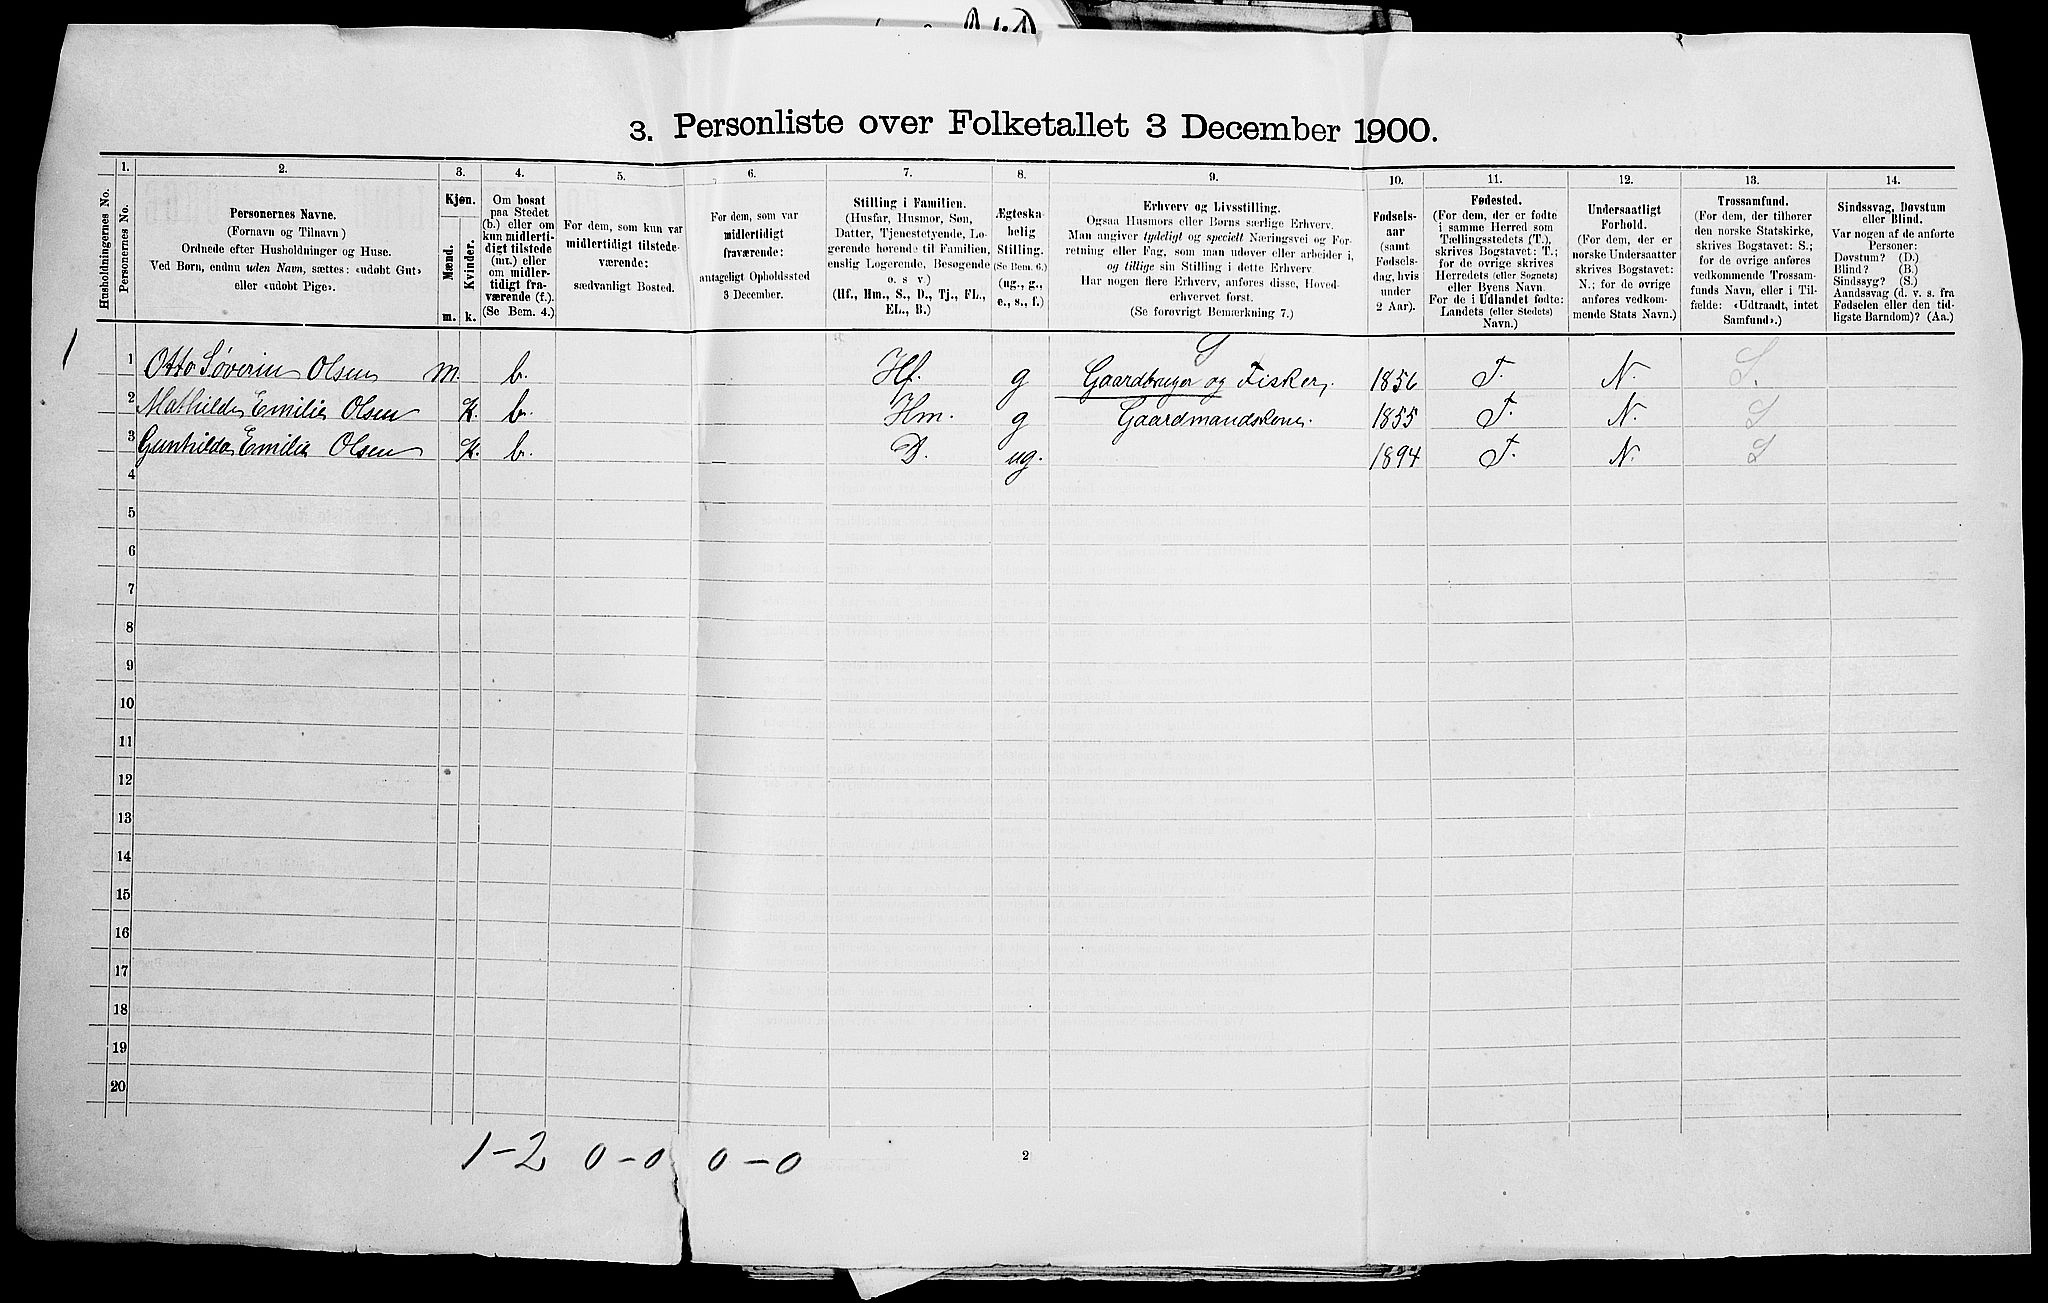 3. Personliste over Folketallet 3 December 1900.
Husholdningernes No.
1. Personernes No.
2. Personernes Navne.
(Fornavn og Tilnavn)
Ordnede efter Husholdninger og Huse.
Ved Børn, endnu uden Navn, sættes: «udøbt Gut»
eller «udøbt Pige».
3. Kjøn.
Mænd. m.
Kvinder. k.
4. Om bosat
paa Stedet
(b.) eller om
kun midlerti-
digt tilstede
(mt.) eller
om midler-
tidigt fra-
værende (f.).
(Se Bem. 4.)
5. For dem, som kun var
midlertidigt tilstede-
værende:
sædvanligt Bosted.
6. For dem, som var
midlertidigt
fraværende:
antageligt Opholdssted
3 December.
7. Stilling i Familien.
(Husfar, Husmor, Søn,
Datter, Tjenestetyende, Lo-
gerende hørende til Familien,
enslig Logerende, Besøgende
o. s v.)
(Hf., Hm., S., D., Tj., FL.,
EL., B.)
8. Ægteska-
belig
Stilling.
(Se Bem. 6.)
(ug., g.,
e., s., f.)
9. Erhverv og Livsstilling.
Ogsaa Husmors eller Børns særlige Erhverv.
Man angiver tydeligt og specielt Næringsvei og For-
retning eller Fag, som man udøver eller arbeider i,
og tillige sin Stilling i dette Erhverv.
Har nogen flere Erhverv, anføres disse, Hoved-
erhvervet først.
(Se forøvrigt Bemærkning 7.)
10. Fødsels-
aar
(samt
Fødsels-
dag, hvis
under
2 Aar).
11. Fødested.
(For dem, der er fødte
i samme Herred som
Tællingsstedets (T.),
skrives Bogstavet: T.;
for de øvrige skrives
Herredets (eller Sognets)
eller Byens Navn.
For de i Udlandet fødte:
Landets (eller Stedets)
Navn.)
12. Undersaatligt
Forhold.
(For dem, der er
norske Undersaatter
skrives Bogstavet:
N.; for de øvrige
anføres vedkom-
mende Stats Navn.)
13. Trossamfund.
(For dem, der tilhører
den norske Statskirke,
skrives Bogstavet: S.;
for de øvrige anføres
vedkommende Trossam-
funds Navn, eller i Til-
fælde: «Udtraadt, intet
Samfund».)
14. Sindssvag, Døvstum
eller Blind.
Var nogen af de anførte
Personer:
Døvstum? (D.)
Blind? (B.)
Sindssyg? (S.)
Aandssvag (d. v. s. fra
Fødselen eller den tid-
ligste Barndom)? (Aa.)
S
1 1 Otto Søverin Olsen m. b. Hf. g Gaardbruger og Fisker, 1856 T. N. S.
2 Mathilde Emilie Olsen K. b. Hm. g Gaardmandskone. 1855 T. N. S
3 Gunhilda Emilie Olsen K. b. D. ug. 1894 T. N. S
4
5
6
7
8
9
10
11
12
13
14
15
16
17
18
19
20
1-2 0-0 0-0
2